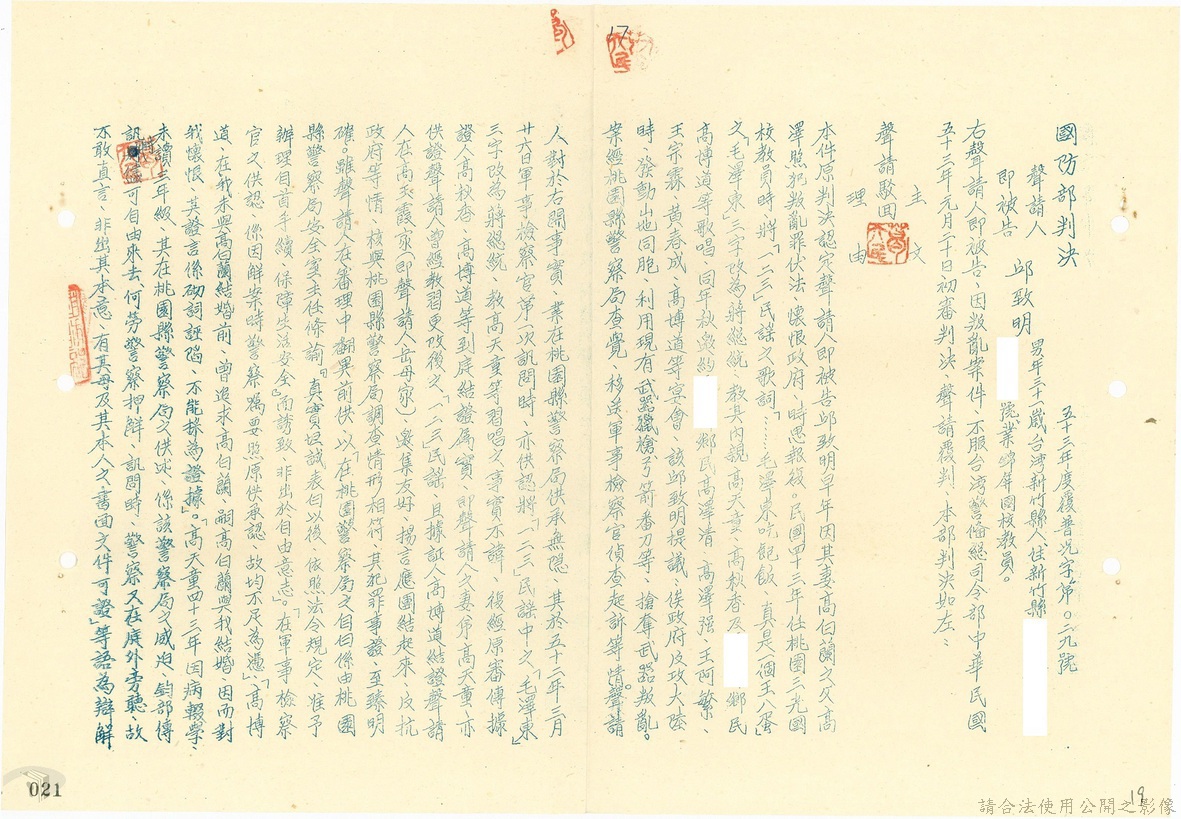 國防部判決
五十三年度覆普況字第〇二九號
聲請人
即被告
邱致明
男年三十歲台湾新竹縣人住新竹縣
號業碑屏國校教員。
右聲請人即被告、因叛亂案件、不服台湾警俻總司令部中華民國
五十三年元月二十日初審判決、聲請覆判、本部判決如左、
主文
聲請駁回
理由
本件原判決認定聲請人即被告邱致明早年因其妻高伯蘭之父高
澤照犯叛亂罪伏法、懷恨政府、時思報復。民國四十三年任桃園三光國
校教員時、將「一二三」民謠之歌詞、「……毛澤東吃飽飯、真是一個王八蛋」
之「毛澤東」三字改為蔣總統、教其內親高天童、高秋香及 鄉民
高博道等歌唱、同年秋邀約 鄉民高澤清、高澤强、王阿繁、
王宗霖、黃春成、高博道等宴會、該邱致明提議、俟政府反攻大陸
時、發動山地同胞、利用現有武器獵槍弓箭番刀等、搶奪武器叛亂。
案經桃園縣警察局查覺、移送軍事檢察官偵查起訴等情。聲請
人對於右開事實、業在桃園縣警察局供承無隱、其於五十二年三月
廿六日軍事檢察官第一次訊問時、亦供認將「一二三」民謠中之「毛澤東」
三字改為蔣總統、教高天童等習唱之事實不諱、復經原審傳據
證人高秋香、高博道等到庭結證屬實、即聲請人之妻弟高天童、亦
供證聲請人曾經教習更改後之「一二三」民謠、且據証人高博道結證聲請
人在高天霞家(即聲請人岳母家)邀集友好、揚言應團結起來、反抗
政府等情、核與桃園縣警察局調查情形相符、其犯罪事證、至臻明
確。雖聲請人在審理中翻異前供、以「在桃園警察局之自白係由桃園
縣警察局安全室主任條諭『真實坦誠表白以後、依照法令規定、准予
辦理自首手續、保障生活安全』而誘致、非出於自由意志」。「在軍事檢察
官之供認、係因解案時警察囑要照原供承認、故均不足為憑」、「高博
道、在我未與高伯蘭結婚前、曾追求高伯蘭、嗣高伯蘭與我結婚、因而對
我懷恨、其證言係砌詞誣陷、不能採為證據」。「高天童四十三年因病輟學、
未讀三年級、其在桃園縣警察局之供述、係該警察局之威迫、鈞部傳
訊時儘可自由來去、何勞警察押解、訊問時、警察又在庭外旁聽、故
不敢真言、非出其本意、有其母及其本人之書面文件可證」等語為辯解
17
19
021
請合法使用公開之影像